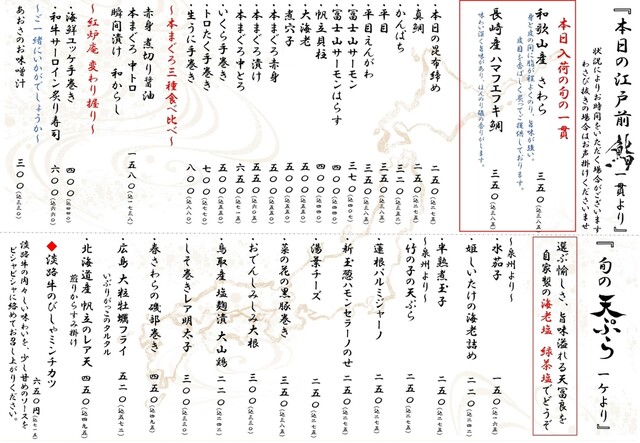 『本日の江戸前 鮨 一貫より』
状況によりお時間をいただく場合がございます
わさび抜きの場合はお声掛けくださいませ
本日入荷の旬の一貫
和歌山産 さわら 三五〇(込三八五)
身と皮の間に脂が程よくのり、旨味が強い。
皮目を香ばしく炙ってご提供しております。
長崎産 ハマフエフキ鯛 三五〇(込三八五)
味わい深く旨味があり、ほんのり磯の香りがします。
・本日の昆布締め 二五〇(込二七五)
・真鯛 二五〇(込二七五)
・かんぱち 三二〇(込三五二)
・平目 三五〇(込三八五)
・平目えんがわ 三五〇(込三八五)
・富士山サーモン 三七〇(込四〇七)
・富士山サーモンはらす 四〇〇(込四四〇)
・帆立貝柱 四〇〇(込四四〇)
・大海老 五〇〇(込五五〇)
・煮穴子 五〇〇(込五五〇)
・本まぐろ赤身 五〇〇(込五五〇)
・本まぐろ漬け 五五〇(込六〇五)
・本まぐろ中とろ 六五〇(込七一五)
・いくら手巻き 五〇〇(込五五〇)
・トロたく手巻き 七〇〇(込七七〇)
・生うに手巻き 八〇〇(込八八〇)
〜本まぐろ三種食べ比べ〜
赤身 煮切り醤油
瞬間漬け 和からし
本まぐろ 中トロ 一五八〇(込一七三八)
〜紅炉庵 変わり握り〜
・海鮮ユッケ手巻き 四〇〇(込四四〇)
・和牛サーロイン炙り寿司 六〇〇(込六六〇)
〜ご一緒にいかがでしょうか〜
あおさのお味噌汁 三〇〇(込三三〇)
『旬の 天ぷら 一ケより』
選ぶ愉しさ、旨味溢れる天冨良を
自家製の海老塩 緑茶塩でどうぞ
〜泉州より〜
・水茄子 一五〇(込一六五)
・椎しいたけの海老詰め 二二〇(込二四二)
〜泉州より〜
・半熟煮玉子 二五〇(込二七五)
・竹の子の天ぷら 二五〇(込二七五)
・蓮根パルミジャーノ 二五〇(込二七五)
・新玉葱ハモンセラーノのせ 二五〇(込二七五)
・湯葉チーズ 二五〇(込二七五)
・菜の花の黒豚巻き 三五〇(込三八五)
・おでんしみしみ大根 三〇〇(込三三〇)
・鳥取産 塩麹漬 大山鶏 二二〇(込二四二)
・しそ巻きレア明太子 三〇〇(込三三〇)
・春さわらの磯部巻き 四五〇(込四九五)
・広島 大粒牡蠣フライ 五二〇(込五七二)
いぶりがっこのタルタル
・北海道産 帆立のレア天 四五〇(込四九五)
煎りからすみ掛け
◆淡路牛のびしゃミンチカツ 六五〇円(込七一五)
淡路牛の肉々しい味わいを、少し甘めのソースを
ビシャビシャに絡めてお召し上がりください。